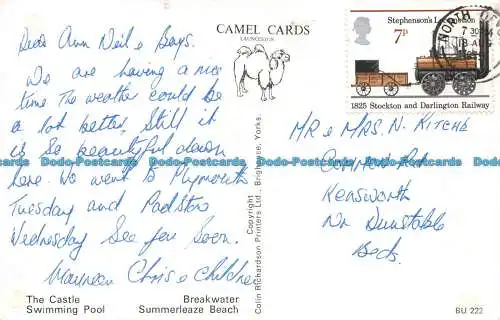 CAMEL CARDS
LAUNCESTON
Dear Ann Neil & Boys.
We are having a nice
time the weather could be
a lot better, Still it
is so beautiful down
here. We went to Plymouth
Tuesday and Padstow
Wednesday See you Soon.
Maureen Chris & Children
The Castle
Swimming Pool
Breakwater
Summerleaze Beach
Copyright
Colin Richardson Printers Ltd., Yorks.
Stephenson's Locomotion
7P
1825 Stockton and Darlington Railway
NORTH
7 30
MR & MRS. N. KITCHE
Common Rd
Kensworth
Nr Dunstable
Beds.
BU 222
Dodo-Postcards Dodo-Postcards Dodo-Postcards Dodo-Postcards Dodo-Postcards